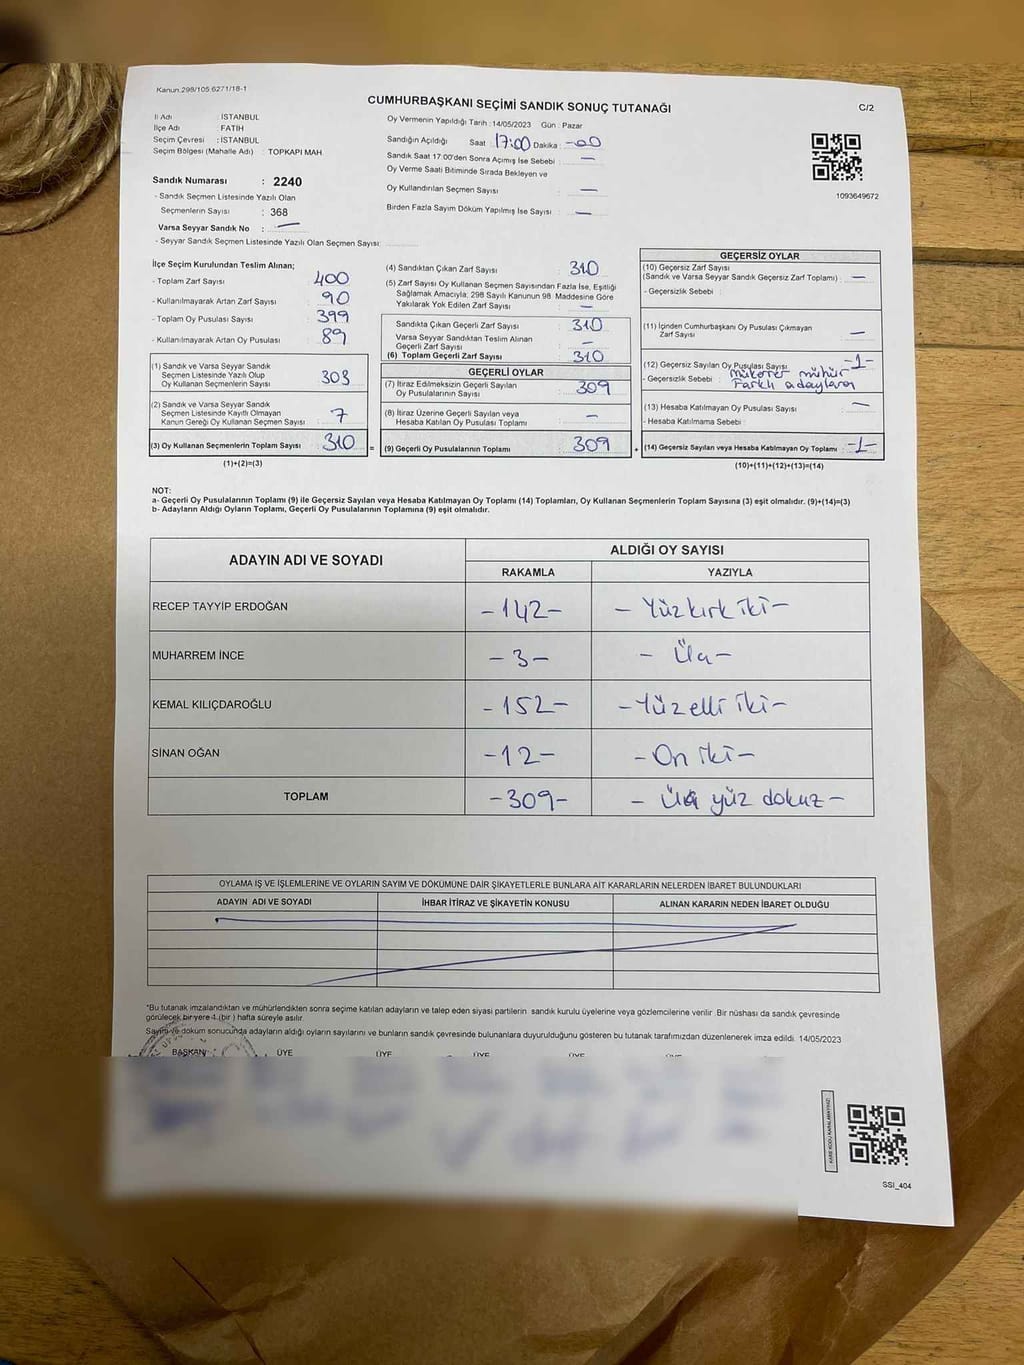 Kanun.298/105 6271/18-1
CUMHURBAŞKANI SEÇİMİ SANDIK SONUÇ TUTANAĞI
C/2
İl Adı : İSTANBUL
İlçe Adı : FATİH
Seçim Çevresi : İSTANBUL
Seçim Bölgesi (Mahalle Adı) : TOPKAPI MAH.
Sandık Numarası : 2240
- Sandık Seçmen Listesinde Yazılı Olan
Seçmenlerin Sayısı : 368
Varsa Seyyar Sandık No : —
- Seyyar Sandık Seçmen Listesinde Yazılı Olan Seçmen Sayısı:
Oy Vermenin Yapıldığı Tarih : 14/05/2023 Gün : Pazar
Sandığın Açıldığı Saat 17:00 Dakika : -00
Sandık Saat 17:00'den Sonra Açımış İse Sebebi : —
Oy Verme Saati Bitiminde Sırada Bekleyen ve
Oy Kullandırılan Seçmen Sayısı —
Birden Fazla Sayım Döküm Yapılmış İse Sayısı : —
1093649672
İlçe Seçim Kurulundan Teslim Alınan;
- Toplam Zarf Sayısı : 400
- Kullanılmayarak Artan Zarf Sayısı : 90
- Toplam Oy Pusulası Sayısı : 399
- Kullanılmayarak Artan Oy Pusulası : 89
(1) Sandık ve Varsa Seyyar Sandık
Seçmen Listesinde Yazılı Olup
Oy Kullanan Seçmenlerin Sayısı : 303
(2) Sandık ve Varsa Seyyar Sandık
Seçmen Listesinde Kayıtlı Olmayan
Kanun Gereği Oy Kullanan Seçmen Sayısı : 7
(3) Oy Kullanan Seçmenlerin Toplam Sayısı : 310
(1)+(2)=(3)
(4) Sandıktan Çıkan Zarf Sayısı : 310
(5) Zarf Sayısı Oy Kullanan Seçmen Sayısından Fazla İse, Eşitliği
Sağlamak Amacıyla; 298 Sayılı Kanunun 98. Maddesine Göre
Yakılarak Yok Edilen Zarf Sayısı : —
Sandıkta Çıkan Geçerli Zarf Sayısı : 310
Varsa Seyyar Sandıktan Teslim Alınan
Geçerli Zarf Sayısı : —
(6) Toplam Geçerli Zarf Sayısı : 310
GEÇERLİ OYLAR
(7) İtiraz Edilmeksizin Geçerli Sayılan
Oy Pusulalarının Sayısı : 309
(8) İtiraz Üzerine Geçerli Sayılan veya
Hesaba Katılan Oy Pusulası Toplamı : —
= (9) Geçerli Oy Pusulalarının Toplamı : 309
GEÇERSİZ OYLAR
(10) Geçersiz Zarf Sayısı
(Sandık ve Varsa Seyyar Sandık Geçersiz Zarf Toplamı) : —
- Geçersizlik Sebebi :
(11) İçinden Cumhurbaşkanı Oy Pusulası Çıkmayan
Zarf Sayısı : —
(12) Geçersiz Sayılan Oy Pusulası Sayısı : -1-
- Geçersizlik Sebebi : mükerrer mühür
Farklı adaylara
(13) Hesaba Katılmayan Oy Pusulası Sayısı : —
- Hesaba Katılmama Sebebi :
+ (14) Geçersiz Sayılan veya Hesaba Katılmayan Oy Toplamı : -1-
(10)+(11)+(12)+(13)=(14)
NOT:
a- Geçerli Oy Pusulalarının Toplamı (9) ile Geçersiz Sayılan veya Hesaba Katılmayan Oy Toplamı (14) Toplamları, Oy Kullanan Seçmenlerin Toplam Sayısına (3) eşit olmalıdır. (9)+(14)=(3)
b- Adayların Aldığı Oyların Toplamı, Geçerli Oy Pusulalarının Toplamına (9) eşit olmalıdır.
ADAYIN ADI VE SOYADI
ALDIĞI OY SAYISI
RAKAMLA YAZIYLA
RECEP TAYYİP ERDOĞAN -142- - Yüz kırk iki -
MUHARREM İNCE -3- - Üç -
KEMAL KILIÇDAROĞLU -152- - Yüz elli iki -
SİNAN OĞAN -12- - On iki -
TOPLAM -309- - Üç yüz dokuz -
OYLAMA İŞ VE İŞLEMLERİNE VE OYLARIN SAYIM VE DÖKÜMÜNE DAİR ŞİKAYETLERLE BUNLARA AİT KARARLARIN NELERDEN İBARET BULUNDUKLARI
ADAYIN ADI VE SOYADI İHBAR İTİRAZ VE ŞİKAYETİN KONUSU ALINAN KARARIN NEDEN İBARET OLDUĞU
*Bu tutanak imzalandıktan ve mühürlendikten sonra seçime katılan adayların ve talep eden siyasi partilerin sandık kurulu üyelerine veya gözlemcilerine verilir. Bir nüshası da sandık çevresinde
görülecek bir yere 1 (bir) hafta süreyle asılır.
Sayım ve döküm sonucunda adayların aldığı oyların sayılarını ve bunların sandık çevresinde bulunanlara duyurulduğunu gösteren bu tutanak tarafımızdan düzenlenerek imza edildi. 14/05/2023
BAŞKAN ÜYE ÜYE ÜYE ÜYE ÜYE
KARE KODU KARALAMAYINIZ!
SSI_404